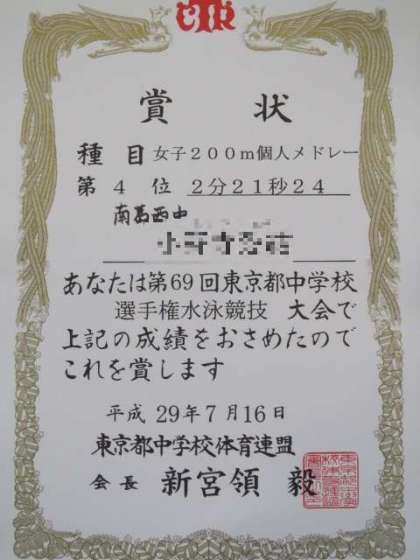 賞状
種目 女子200m個人メドレー
第4位 2分21秒24
あなたは第69回東京都中学校
選手権水泳競技 大会で
上記の成績をおさめたので
これを賞します
平成29年7月16日
東京都中学校体育連盟
会長 新宮領 毅